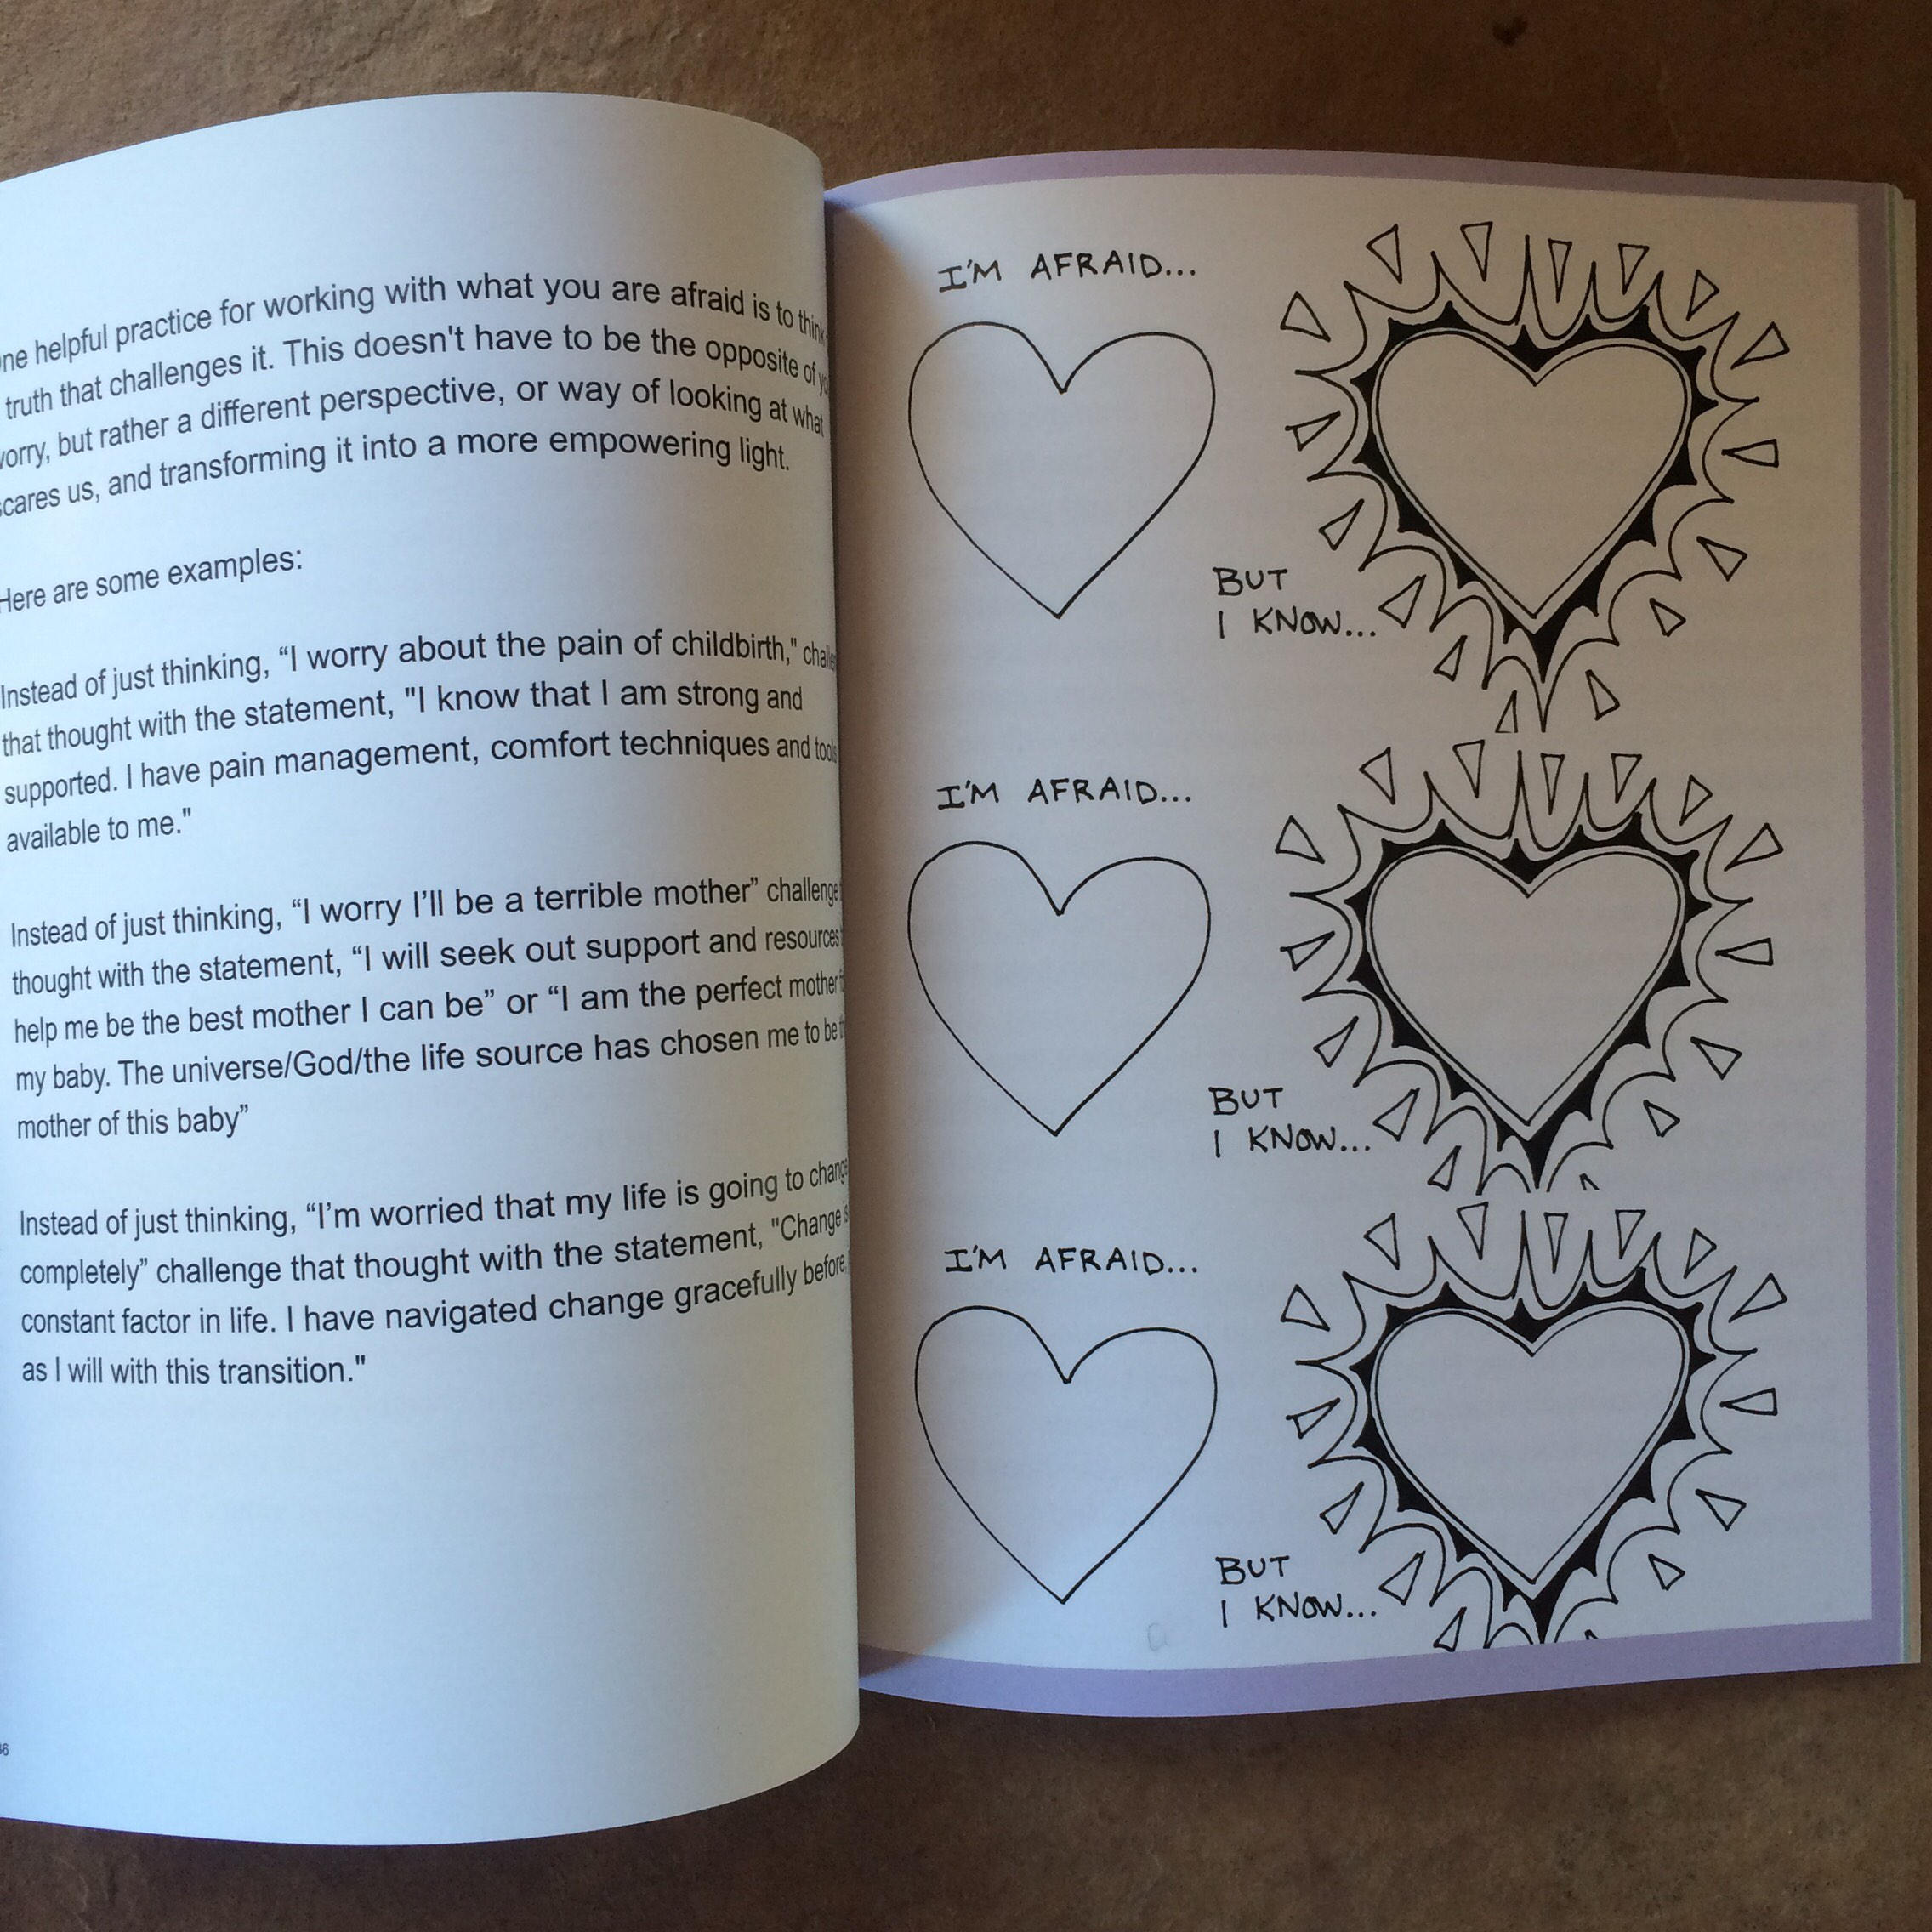 ne helpful practice for working with what you are afraid is to think
truth that challenges it. This doesn't have to be the opposite of
orry, but rather a different perspective, or way of looking at what
cares us, and transforming it into a more empowering light.
Here are some examples:
Instead of just thinking, “I worry about the pain of childbirth,"
that thought with the statement, "I know that I am strong and
supported. I have pain management, comfort techniques and tools
available to me."
Instead of just thinking, “I worry I’ll be a terrible mother” challenge
thought with the statement, “I will seek out support and resources
help me be the best mother I can be” or “I am the perfect mother
my baby. The universe/God/the life source has chosen me to be
mother of this baby”
Instead of just thinking, “I’m worried that my life is going to change
completely” challenge that thought with the statement, "Change is
constant factor in life. I have navigated change gracefully before,
as I will with this transition."
I'M AFRAID...
BUT
I KNOW...
I'M AFRAID...
BUT
I KNOW...
I'M AFRAID...
BUT
I KNOW...